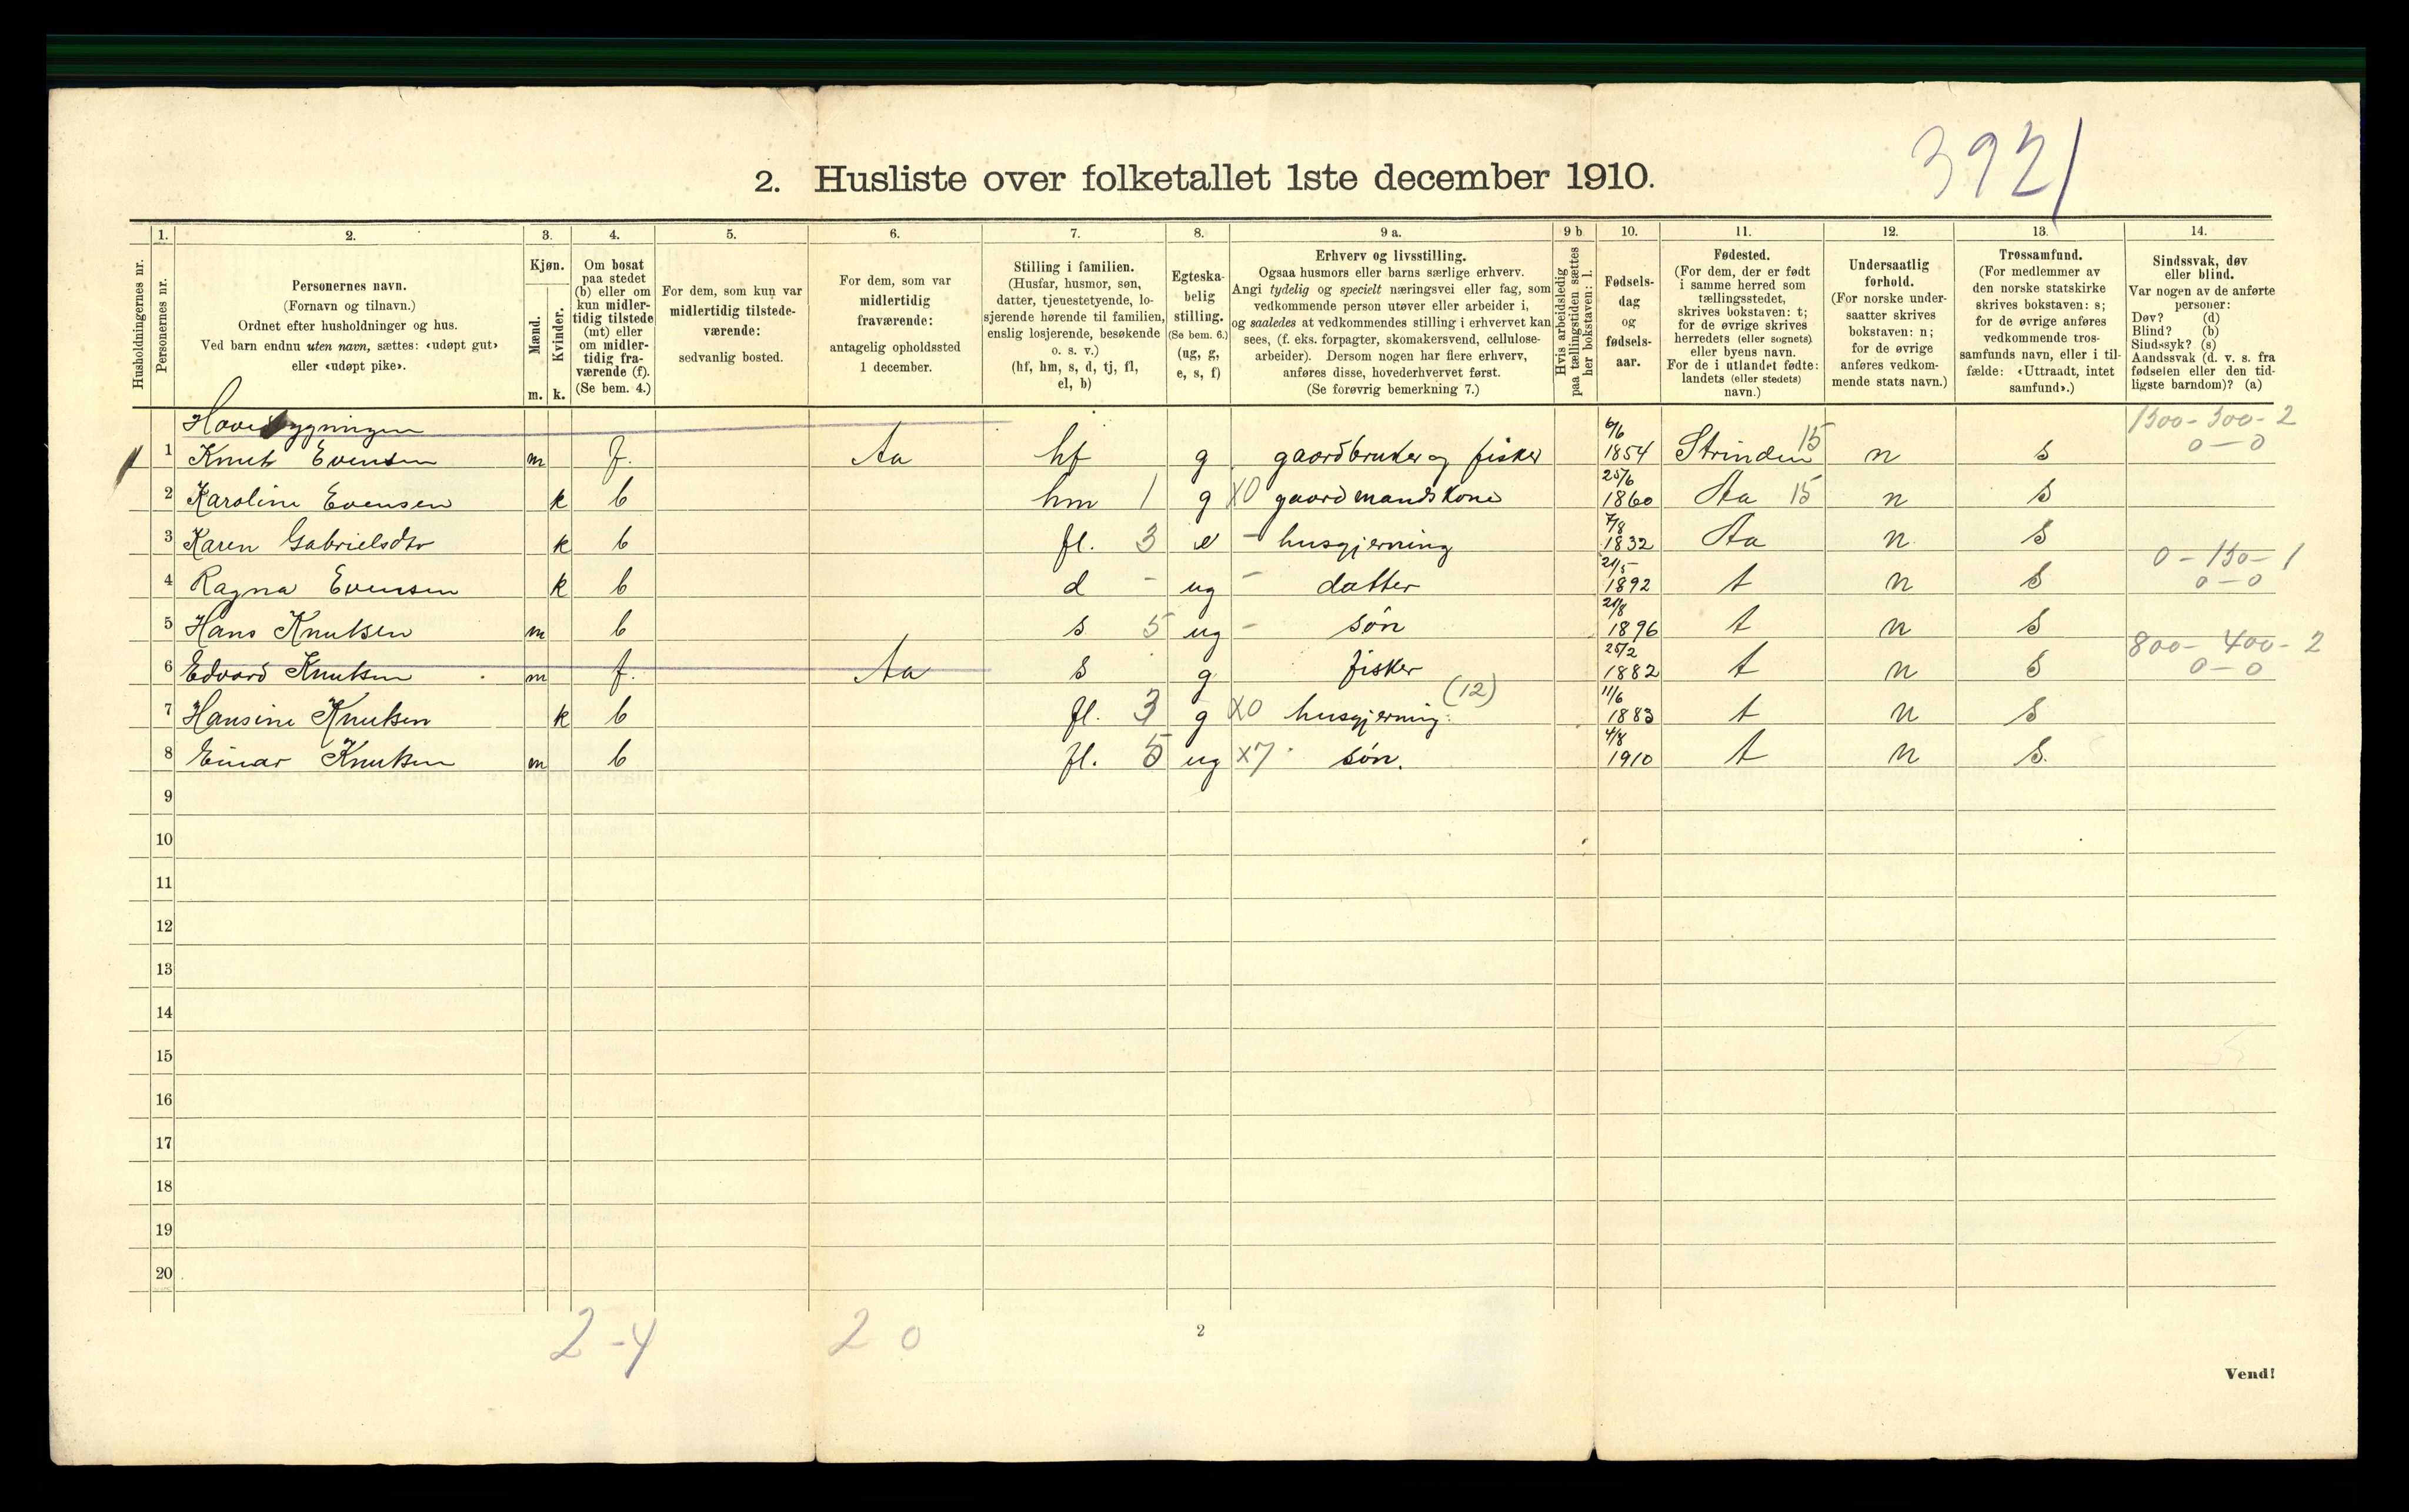 3921
2. Husliste over folketallet 1ste december 1910.
Husholdningernes nr.
1.
Personernes nr.
2.
Personernes navn.
(Fornavn og tilnavn.)
Ordnet efter husholdninger og hus.
Ved barn endnu uten navn, sættes: «udøpt gut»
eller «udøpt pike».
3.
Kjøn.
Mænd.
Kvinder.
m. k.
4.
Om bosat
paa stedet
(b) eller om
kun midler-
tidig tilstede
(mt) eller
om midler-
tidig fra-
værende (f).
(Se bem. 4.)
5.
For dem, som kun var
midlertidig tilstede-
værende:
sedvanlig bosted.
6.
For dem, som var
midlertidig
fraværende:
antagelig opholdssted
1 december.
7.
Stilling i familien.
(Husfar, husmor, søn,
datter, tjenestetyende, lo-
sjerende hørende til familien,
enslig losjerende, besøkende
o. s. v.)
(hf, hm, s, d, tj, fl,
el, b)
8.
Egteska-
belig
stilling.
(Se bem. 6.)
(ug, g,
e, s, f)
9 a.
Erhverv og livsstilling.
Ogsaa husmors eller barns særlige erhverv.
Angi tydelig og specielt næringsvei eller fag, som
vedkommende person utøver eller arbeider i,
og saaledes at vedkommendes stilling i erhvervet kan
sees, (f. eks. forpagter, skomakersvend, cellulose-
arbeider). Dersom nogen har flere erhverv,
anføres disse, hovederhvervet først.
(Se forøvrig bemerkning 7.)
9 b
Hvis arbeidsledig
paa tællingstiden sættes
her bokstaven: l.
10.
Fødsels-
dag
og
fødsels-
aar.
11.
Fødested.
(For dem, der er født
i samme herred som
tællingsstedet,
skrives bokstaven: t;
for de øvrige skrives
herredets (eller sognets)
eller byens navn.
For de i utlandet fødte:
landets (eller stedets)
navn.)
12.
Undersaatlig
forhold.
(For norske under-
saatter skrives
bokstaven: n;
for de øvrige
anføres vedkom-
mende stats navn.)
13.
Trossamfund.
(For medlemmer av
den norske statskirke
skrives bokstaven: s;
for de øvrige anføres
vedkommende tros-
samfunds navn, eller i til-
fælde: «Uttraadt, intet
samfund».)
14.
Sindssvak, døv
eller blind.
Var nogen av de anførte
personer:
Døv? (d)
Blind? (b)
Sindssyk? (s)
Aandssvak (d. v. s. fra
fødselen eller den tid-
ligste barndom)? (a)
Hovedbygningen 1500-300-2
1 1 Knut Evensen m f. Aa hf g gaardbruker og fisker 6/6 1854 Strinden 15 n s 0-0
2 Karoline Evensen k b hm 1 g X0 gaardmandskone 25/6 1860 Aa 15 n s
3 Karen Gabrielsdtr k b fl. 3 e - husgjerning 7/8 1832 Aa n s
4 Ragna Evensen k b d - ug - datter 21/5 1892 t n s 0-150-1 0-0
5 Hans Knutsen m b s 5 ug - søn 20/8 1896 t n s
6 Edvard Knutsen m f. Aa s g fisker 25/2 1882 t n s 800-400-2 0-0
7 Hansine Knutsen k b fl. 3 g X0 husgjerning. (12) 11/6 1883 t n s
8 Einar Knutsen m b fl. 5 ug X7 søn. 4/8 1910 t n s.
9
10
11
12
13
14
15
16
17
18
19
20
2-4 2 0
2
Vend!